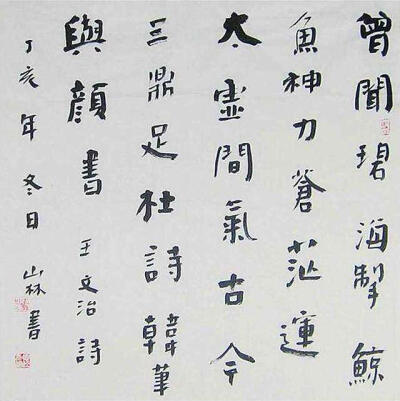 曾聞碧海掣鯨
魚神力蒼茫運
太虛間氣古今
三鼎足杜詩韓筆
與顏書 王文治詩
丁亥年冬日 山林書